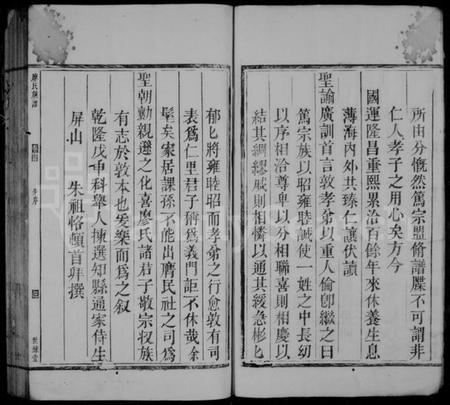 所由分慨然篤宗盟脩譜牒不可謂非
仁人孝子之用心矣方今
國運隆昌重熙累洽百餘年來休養生息
薄海内外共臻仁讓伏讀
聖諭廣訓首言敦孝弟以重人倫卽繼之曰
篤宗族以昭雍睦誠使一姓之中長幼
以序相洽尊卑以分相聯喜則相慶以
結其綢繆戚則相憐以通其緩急彬匕
郁匕將雍睦昭而孝弟之行愈敦有司
表爲仁里君子稱爲義門詎不休哉余
髦矣家居課孫不能出膺民社之司爲
聖朝勷親遜之化喜廖氏諸君子敬宗收族
有志於敦本也爰樂而爲之叙
乾隆戊申科舉人揀選知縣通家侍生
屏山 朱祖恪頓首拜撰
廖氏族譜